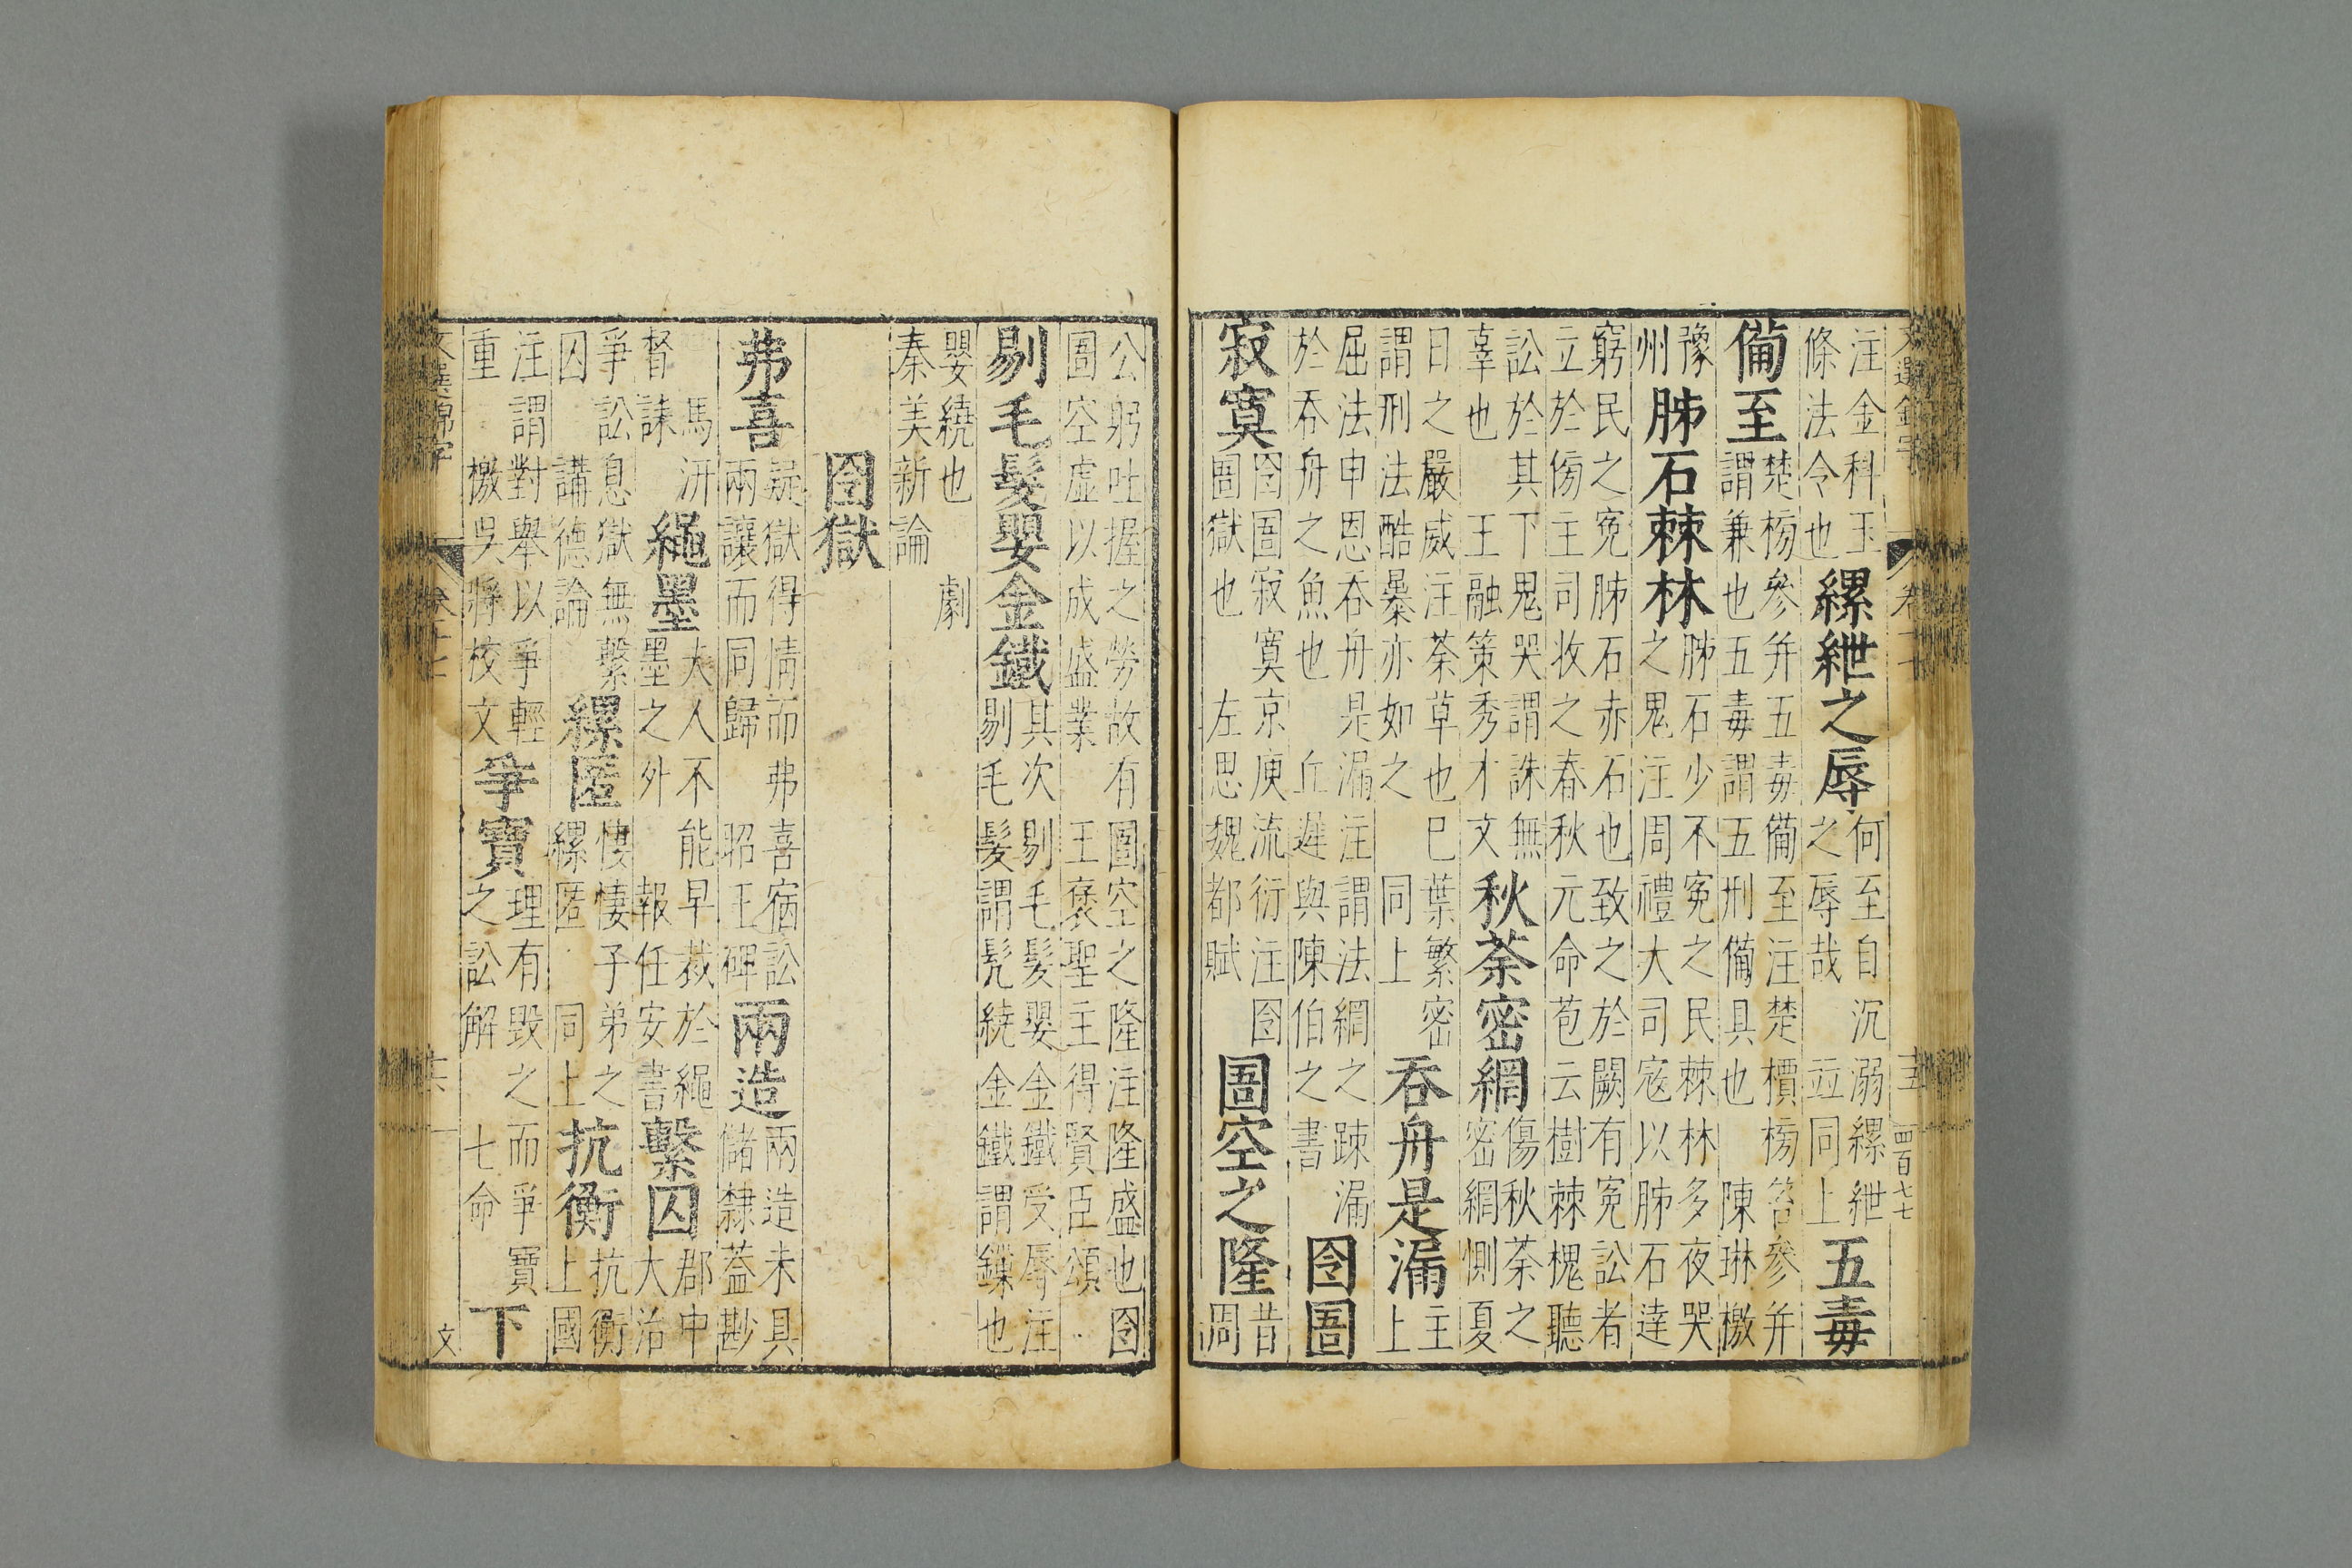 文選錦字 卷十七 十五 四百七七
注金科玉條法令也 縲紲之辱 何至自沉溺縲紲之辱哉 竝同上 五毒
備至 楚榜參并五毒備至注楚檟榜笞參并謂兼也五毒謂五刑備具也 陳琳檄
豫州 肺石棘林 肺石少不冤之民棘林多夜哭之鬼注周禮大司寇以肺石達
窮民之冤肺石赤石也致之於闕有冤訟者立於傍主司收之春秋元命苞云樹棘槐聽
訟於其下鬼哭謂誅無辜也 王融策秀才文 秋荼密網 傷秋荼之密網惻夏
日之嚴威注荼草也巳葉繁密謂刑法酷暴亦如之 同上 吞舟是漏 主上
屈法申恩吞舟是漏注謂法網之疎漏於吞舟之魚也 丘遲與陳伯之書 囹圄
寂寞 囹圄寂寞京庾流衍注囹圄獄也 左思魏都賦 圄空之隆 昔周
公躬吐握之勞故有圄空之隆注隆盛也囹圄空虛以成盛業 王褒聖主得賢臣頌
剔毛髮嬰金鐵 其次剔毛髮嬰金鐵受辱注剔毛髮謂髡繞金鐵謂鏁也
嬰繞也 劇秦美新論
囹獄
弗喜 疑獄得情而弗喜宿訟兩讓而同歸 昭王碑 兩造 兩造未具儲隸蓋尠
馬汧督誄 繩墨 夫人不能早裁於繩墨之外 報任安書 繫囚 郡中大治
爭訟息獄無繫囚 講德論 縲匿 悽悽子弟之縲匿 同上 抗衡 抗衡上國
注謂對舉以爭輕重 檄吳將校文 爭寶 理有毀之而爭寶之訟解 七命 下
文選錦字 卷十七 十六 文